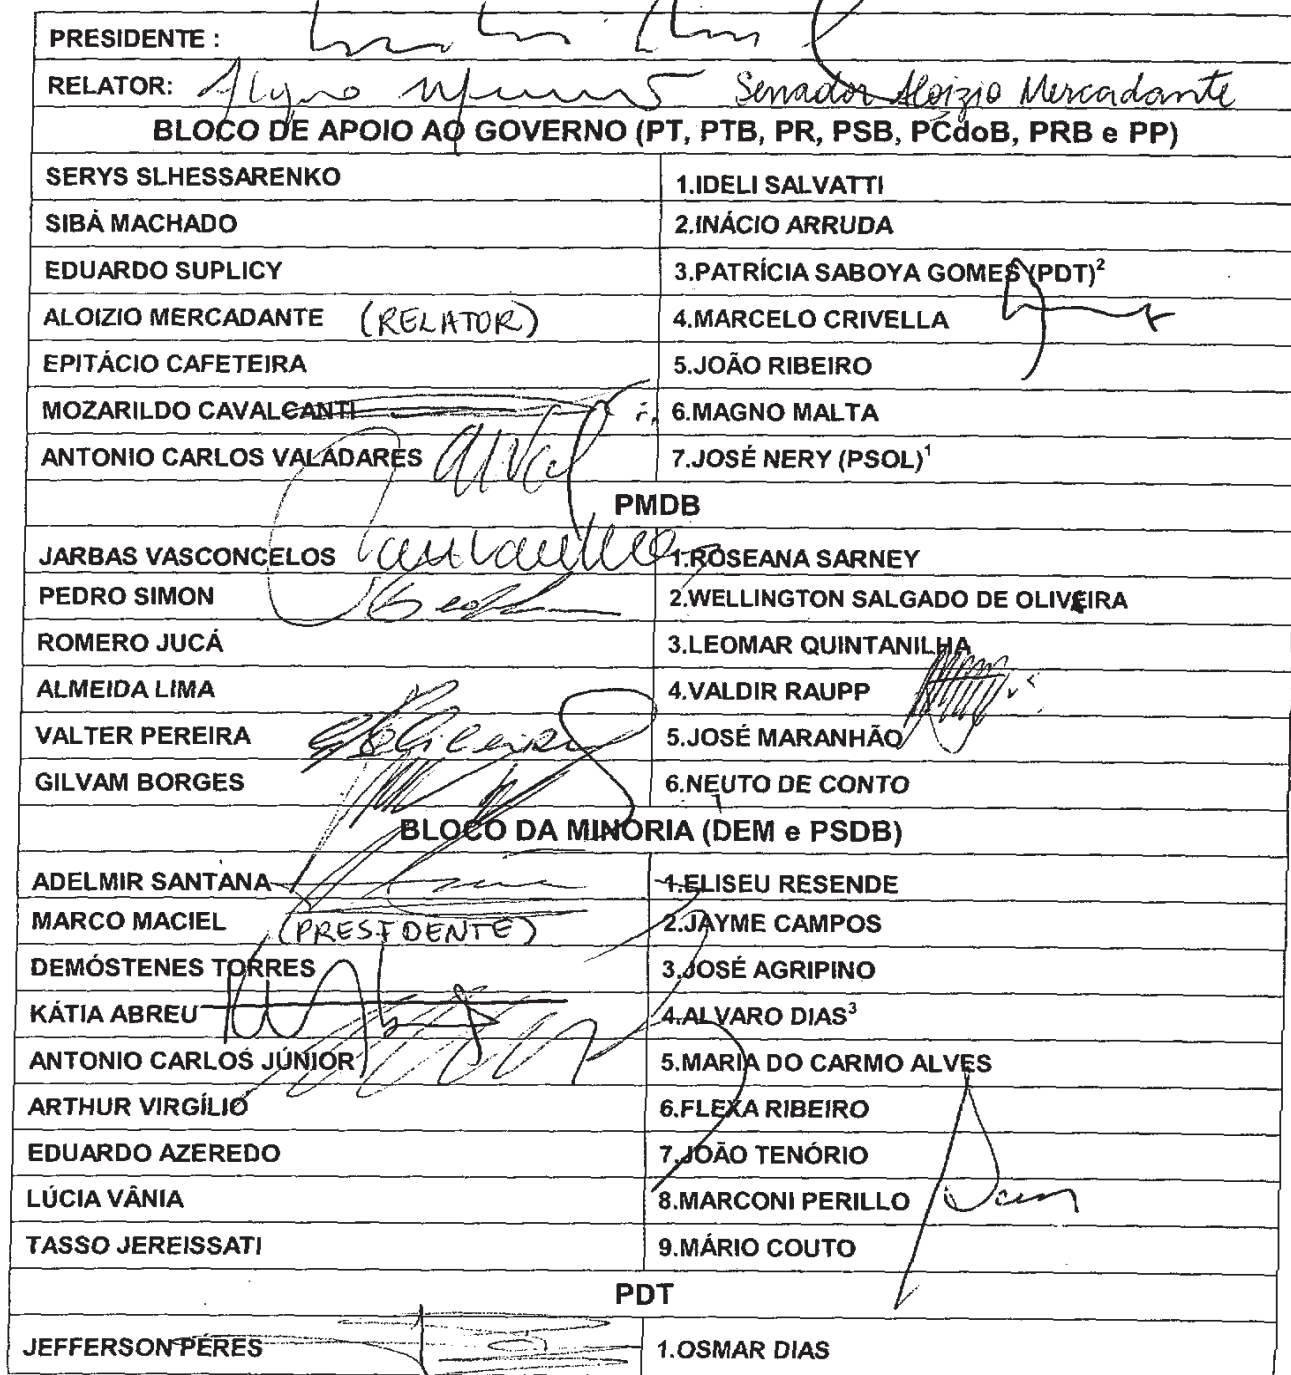 PRESIDENTE :
RELATOR: Senador Aloizio Mercadante
BLOCO DE APOIO AO GOVERNO (PT, PTB, PR, PSB, PCdoB, PRB e PP)
SERYS SLHESSARENKO 1.IDELI SALVATTI
SIBÁ MACHADO 2.INÁCIO ARRUDA
EDUARDO SUPLICY 3.PATRÍCIA SABOYA GOMES (PDT)²
ALOIZIO MERCADANTE (RELATOR) 4.MARCELO CRIVELLA
EPITÁCIO CAFETEIRA 5.JOÃO RIBEIRO
MOZARILDO CAVALCANTI 6.MAGNO MALTA
ANTONIO CARLOS VALADARES 7.JOSÉ NERY (PSOL)¹
PMDB
JARBAS VASCONCELOS 1.ROSEANA SARNEY
PEDRO SIMON 2.WELLINGTON SALGADO DE OLIVEIRA
ROMERO JUCÁ 3.LEOMAR QUINTANILHA
ALMEIDA LIMA 4.VALDIR RAUPP
VALTER PEREIRA 5.JOSÉ MARANHÃO
GILVAM BORGES 6.NEUTO DE CONTO
BLOCO DA MINORIA (DEM e PSDB)
ADELMIR SANTANA 1.ELISEU RESENDE
MARCO MACIEL (PRESIDENTE) 2.JAYME CAMPOS
DEMÓSTENES TORRES 3.JOSÉ AGRIPINO
KÁTIA ABREU 4.ALVARO DIAS³
ANTONIO CARLOS JÚNIOR 5.MARIA DO CARMO ALVES
ARTHUR VIRGÍLIO 6.FLEXA RIBEIRO
EDUARDO AZEREDO 7.JOÃO TENÓRIO
LÚCIA VÂNIA 8.MARCONI PERILLO
TASSO JEREISSATI 9.MÁRIO COUTO
PDT
JEFFERSON PÉRES 1.OSMAR DIAS